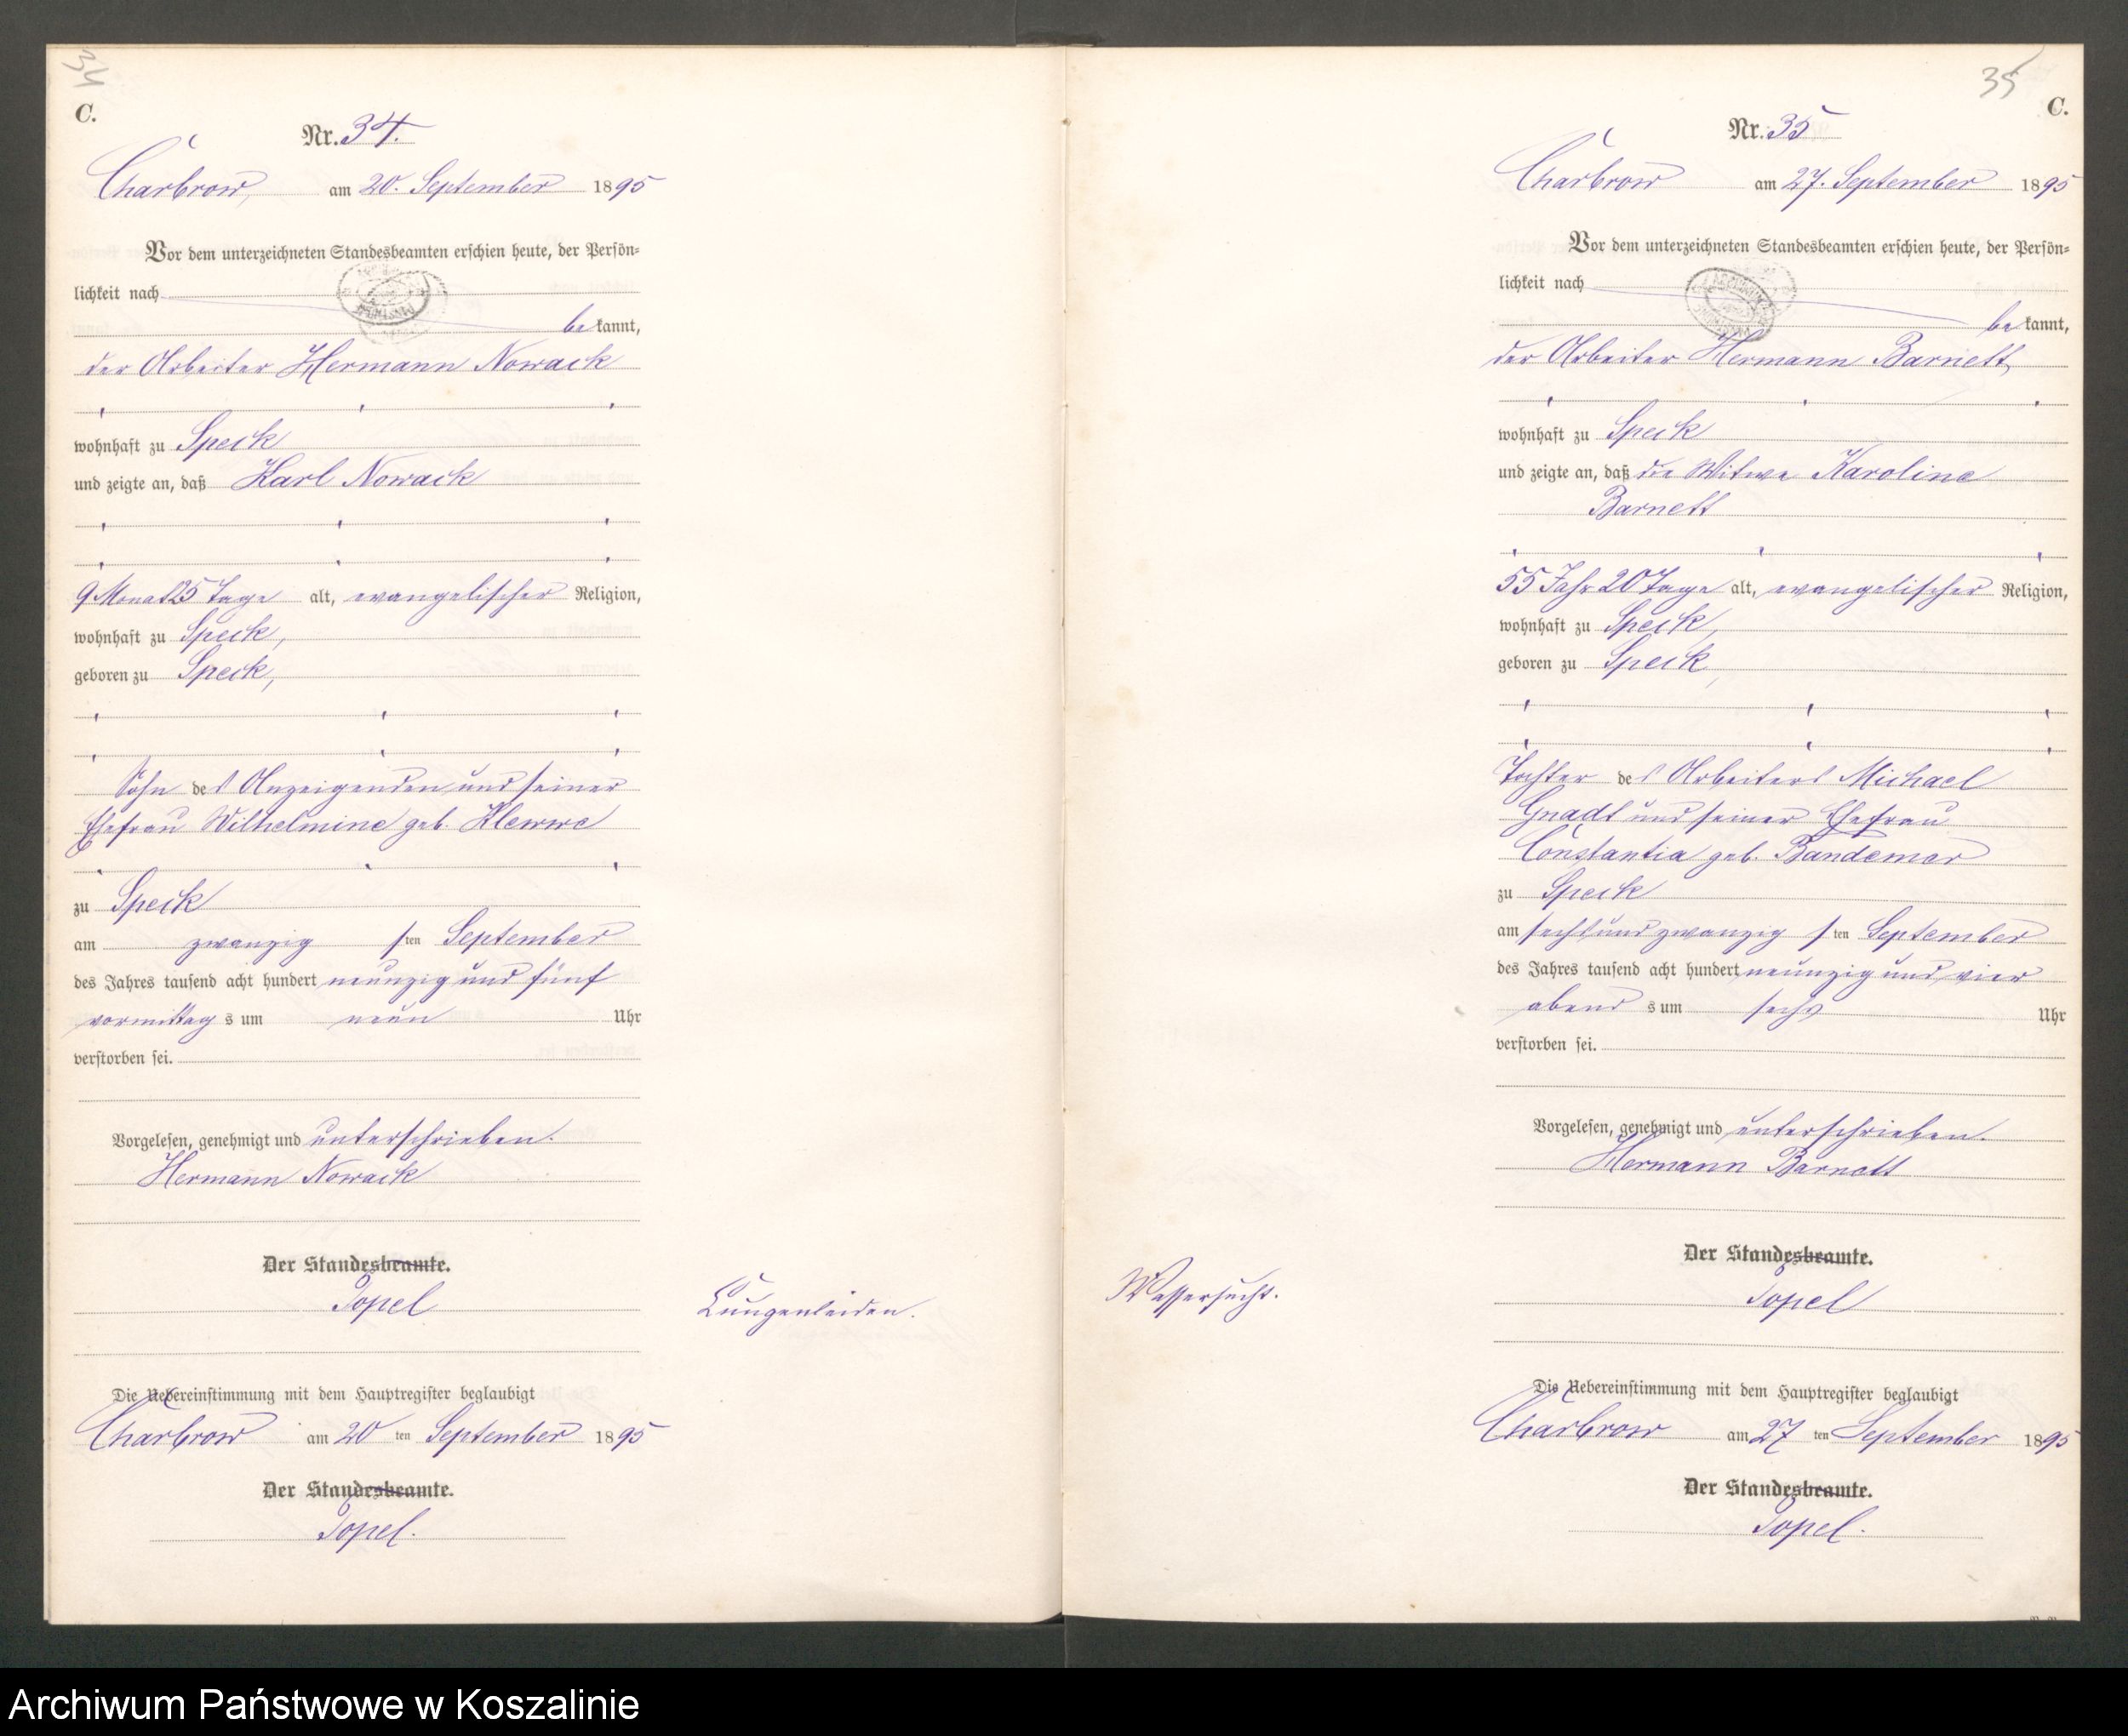 34
C.
Nr. 34.
Charbrow, am 20. September 1895
Vor dem unterzeichneten Standesbeamten erschien heute, der Persön-
lichkeit nach
bekannt,
der Arbeiter Hermann Nowack
wohnhaft zu Speck
und zeigte an, daß Karl Nowack
9 Monat 25 Tage alt, evangelischer Religion,
wohnhaft zu Speck,
geboren zu Speck,
Sohn des Anzeigenden und seiner
Ehefrau Wilhelmine geb. Klewwe
zu Speck
am zwanzigsten September
des Jahres tausend acht hundert neunzig und fünf
vormittags um neun Uhr
verstorben sei.
Vorgelesen, genehmigt und unterschrieben.
Hermann Nowack
Der Standesbeamte.
Topel
Lungenleiden.
Die Uebereinstimmung mit dem Hauptregister beglaubigt
Charbrow am 20ten September 1895
Der Standesbeamte.
Topel.
35
C.
Nr. 35
Charbrow am 27. September 1895
Vor dem unterzeichneten Standesbeamten erschien heute, der Persön-
lichkeit nach
bekannt,
der Arbeiter Hermann Barnett,
wohnhaft zu Speck
und zeigte an, daß die Witwe Karoline
Barnett
55 Jahr 20 Tage alt, evangelischer Religion,
wohnhaft zu Speck,
geboren zu Speck,
Tochter des Arbeiters Michael
Gnadt und seiner Ehefrau
Constantia geb. Bandemer
zu Speck
am sechsundzwanzigsten September
des Jahres tausend acht hundert neunzig und vier
abends um sechs Uhr
verstorben sei.
Vorgelesen, genehmigt und unterschrieben.
Hermann Barnett
Der Standesbeamte.
Topel
Wassersucht.
Die Uebereinstimmung mit dem Hauptregister beglaubigt
Charbrow am 27ten September 1895
Der Standesbeamte.
Topel.
Archiwum Państwowe w Koszalinie